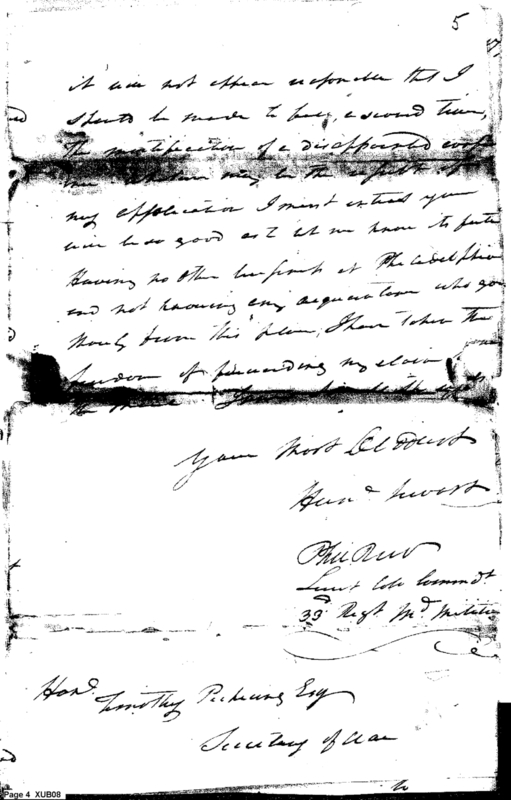 5
it will not appear unreasonable that I
should be made to bear, a second time,
the mortification of a disappointed
may be the result of
my application I must entreat you
will be so good as to let me know its fate
Having no other business at Philadelphia
and not knowing any acquaintance who goes
from this place, I have taken the
freedom of forwarding my claim
the
Your Most Obedient
Hum.
Phil Reed
Lieut Col Commdt
33d Regt Md Militia
Hond. Timothy Pickering Esq
Secretary of War
Page 4 XUB08